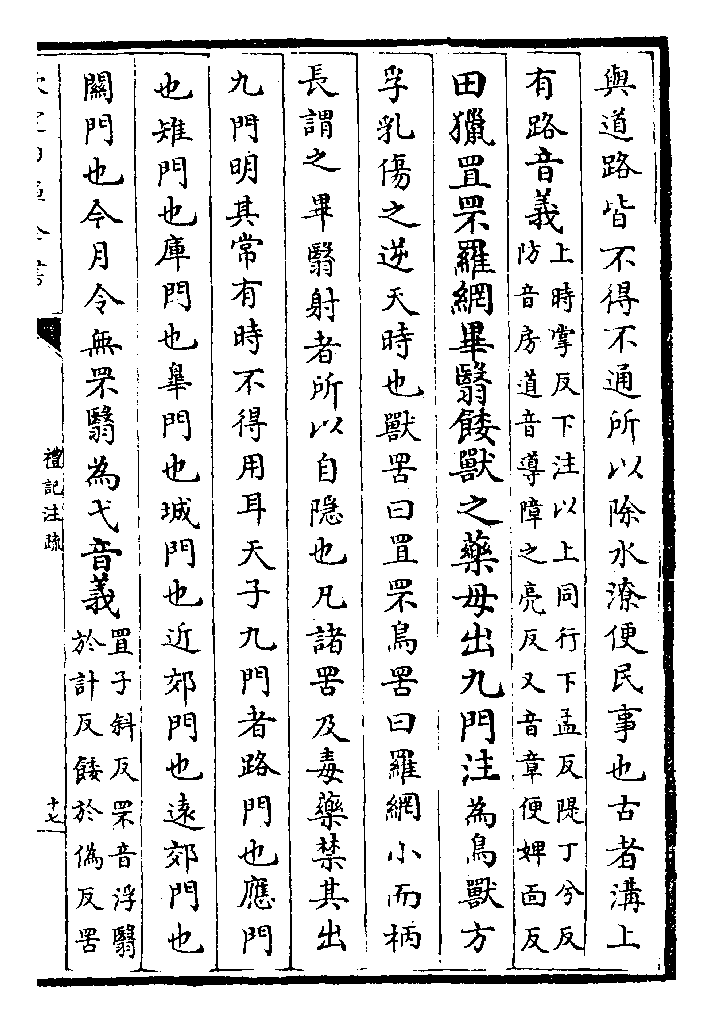 與道路皆不得不通所以除水潦便民事也古者溝上
有路音義上時掌反下注以上同行下孟反隄丁兮反
防音房道音導障之亮反又音章便婢面反
田獵罝罘羅網畢翳餧獸之藥毋出九門注為鳥獸方
孚乳傷之逆天時也獸罟曰罝罘鳥罟曰羅網小而柄
長謂之畢翳射者所以自隱也凡諸罟及毒藥禁其出
九門明其常有時不得用耳天子九門者路門也應門
也雉門也庫門也臯門也城門也近郊門也遠郊門也
關門也今月令無罘翳為弋音義罝子斜反罘音浮翳
於計反餧於偽反罟
欽定四庫全書
禮記注疏
十七